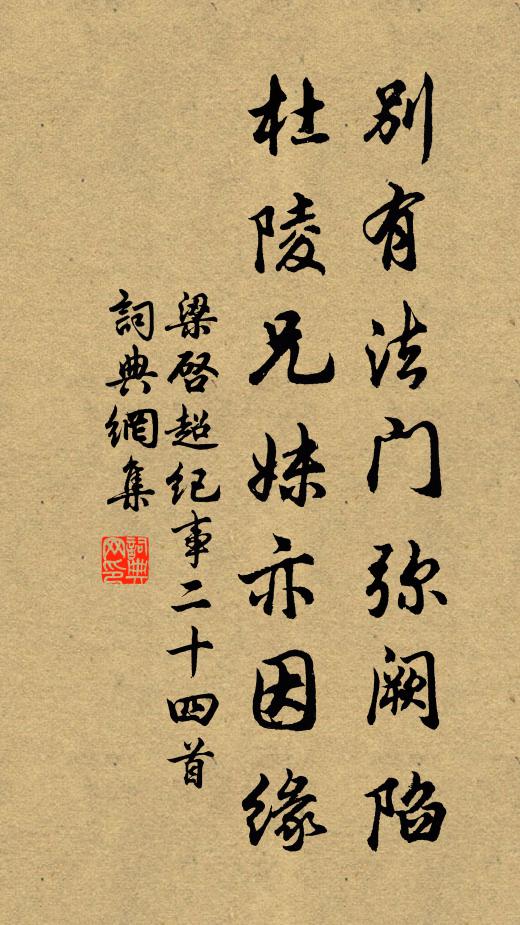 别有法门弥阙陷
杜陵兄妹亦因缘
梁启超纪事二十四首
詞典網集
詞典網印